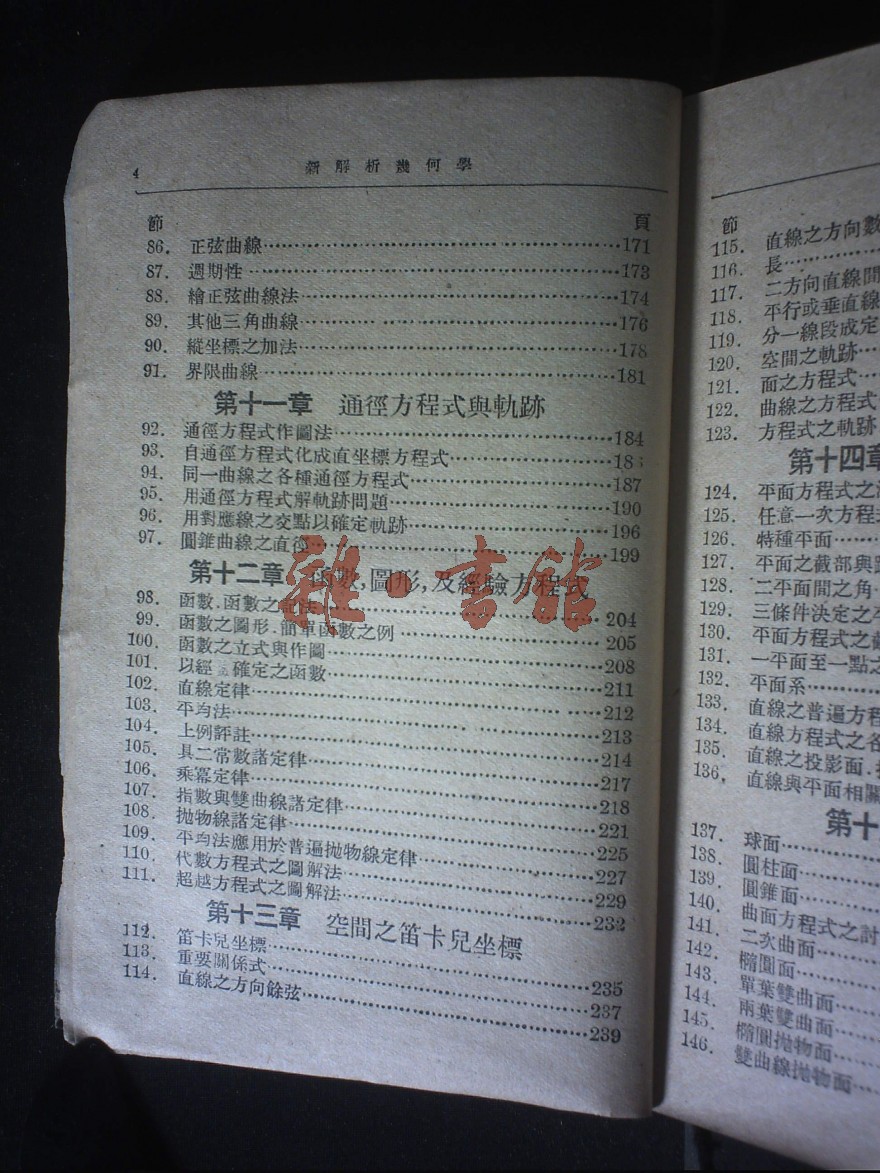 4 新解析幾何學
節 頁
86. 正弦曲線 171
87. 週期性 173
88. 繪正弦曲線法 174
89. 其他三角曲線 176
90. 縱坐標之加法 178
91. 界限曲線 181
第十一章 通徑方程式與軌跡
92. 通徑方程式作圖法 184
93. 自通徑方程式化成直坐標方程式 18
94. 同一曲線之各種通徑方程式 187
95. 用通徑方程式解軌跡問題 190
96. 用對應線之交點以確定軌跡 196
97. 圓錐曲線之直徑 199
第十二章 函數,圖形,及經驗方程式
98. 函數.函數之記法 204
99. 函數之圖形.簡單函數之例 205
100. 函數之立式與作圖 208
101. 以經 確定之函數 211
102. 直線定律 212
103. 平均法 213
104. 上例評註 214
105. 具二常數諸定律 217
106. 乘冪定律 218
107. 指數與雙曲線諸定律 221
108. 拋物線諸定律 225
109. 平均法應用於普遍拋物線定律 227
110. 代數方程式之圖解法 229
111. 超越方程式之圖解法 232
第十三章 空間之笛卡兒坐標
112. 笛卡兒坐標 235
113. 重要關係式 237
114. 直線之方向餘弦 239
雜·書館
節
115. 直線之方向數
116. 長
117. 二方向直線間
118. 平行或垂直線
119. 分一線段成定
120. 空間之軌跡
121. 面之方程式
122. 曲線之方程式
123. 方程式之軌跡
第十四章
124. 平面方程式之
125. 任意一次方程
126. 特種平面
127. 平面之截部與
128. 二平面間之角
129. 三條件決定之
130. 平面方程式之
131. 一平面至一點之
132. 平面系
133. 直線之普遍方程
134. 直線方程式之各
135. 直線之投影面.
136. 直線與平面相關
第十
137. 球面
138. 圓柱面
139. 圓錐面
140. 曲面方程式之討
141. 二次曲面
142. 橢圓面
143. 單葉雙曲面
144. 兩葉雙曲面
145. 橢圓拋物面
146. 雙曲線拋物面